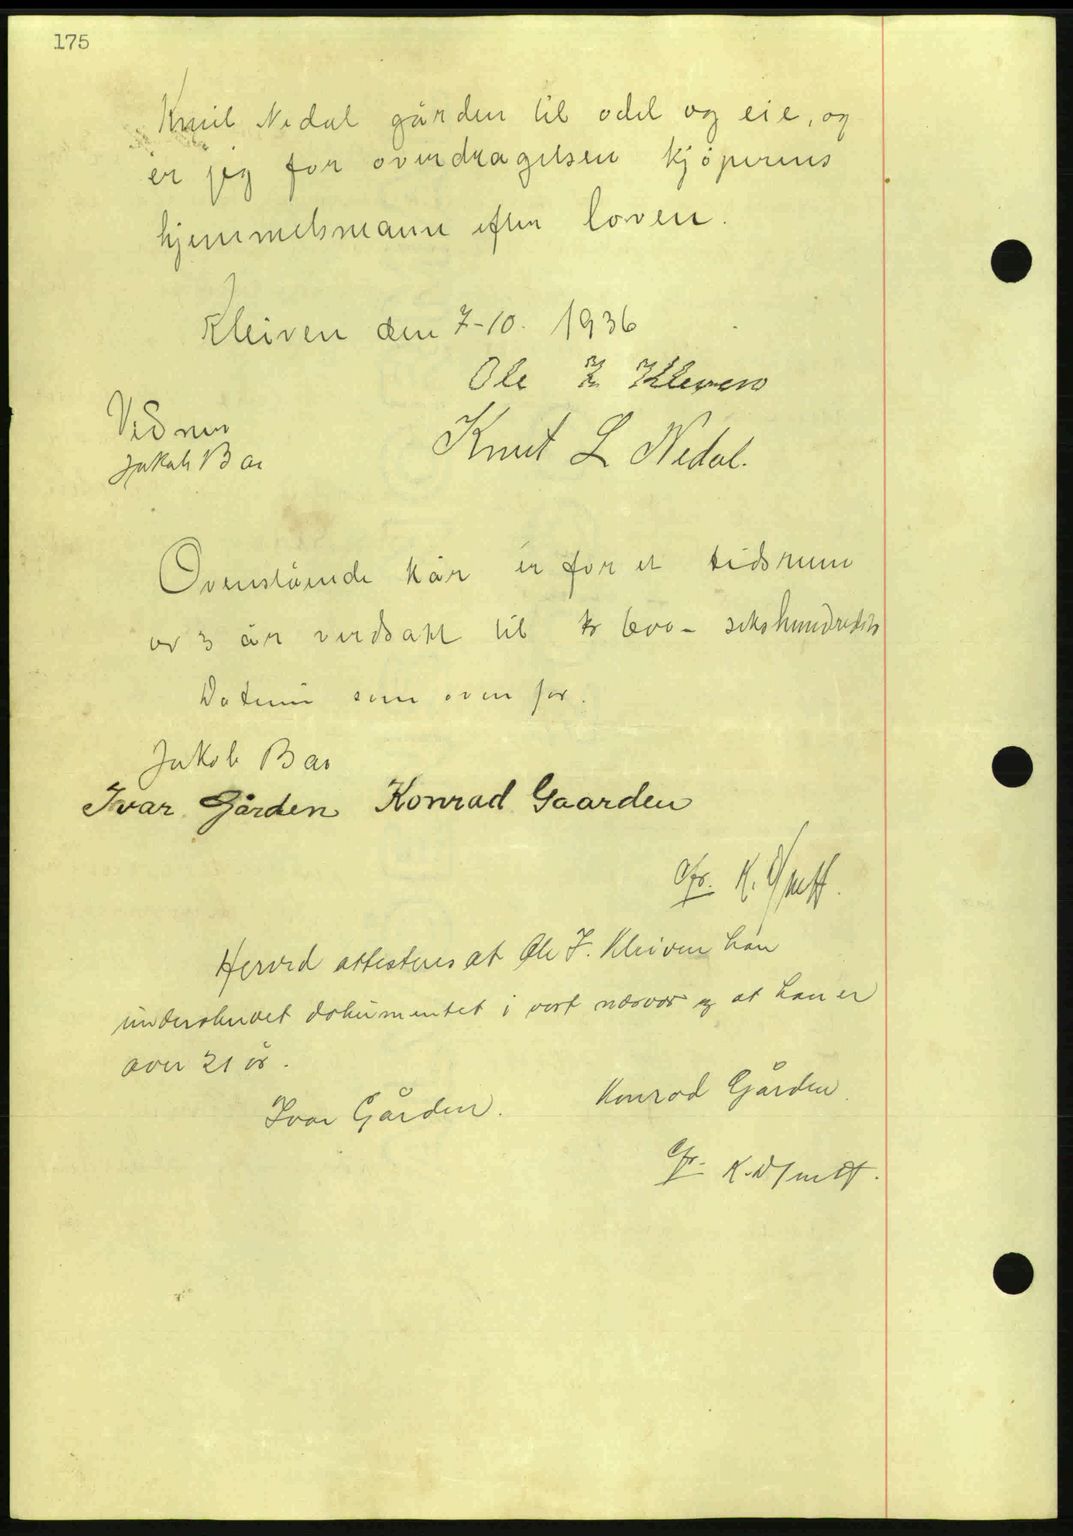 175
Knut Nedal gården til odel og eie, og
er jeg for overdragelsen kjøperens
hjemmelsmann efter loven.
Kleiven den 7-10. 1936
Ole Kleven
Vidner
Jakob Bae
Knut L Nedal.
Ovenstående kår er for et tidsrum
av 5 år verdsatt til kr 600 - sekshundrede
Datum som ovenfor.
Jakob Bae
Ivar Gården Konrad Gaarden
Afr. K.
Herved attesteres at Ole J. Kleiven har
underskrevet dokumentet i vort nærvær og at han er
over 21 år.
Ivar Gården. Konrad Gården.
Afr. K.